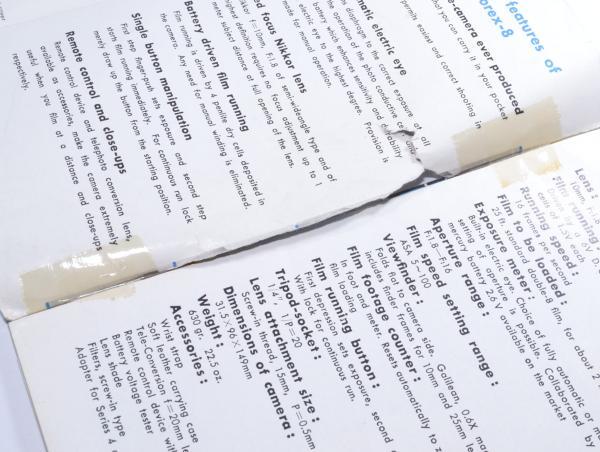 features of
orex-8
-camera ever produced
that you can carry it in your pocket
permits easier and correct shooting in
matic electric eye
ns diaphragm to the correct exposure at all
the operation of the photo conductive
battery which enhances sensitivity and durability
electric eye to the highest degree. Provision is
made for manual operation.
ed focus Nikkor lens
Nikkor f=10mm, F:1.8 of semi-wideangle type and of
highest definition requires no focus adjustment up to 1
meter subject distance at full opening of the lens.
Battery driven film running
Film running is driven by 4 penlite dry cells deposited in
the camera. Any need for manual winding is eliminated.
Single button manipulation
First step finger-push sets exposure and second step
starts film running immediately. For continuous run lock
merely draw up the button from the starting position.
Remote control and close-ups
Remote control device and telephoto conversion lens,
available as accessories, make the camera extremely
useful when you film at a distance and close-ups
respectively.
Lens:
10mm,
Film running
Driven by a 6V D.
cells of 1.5V each
Running speed:
16 frames per second
Film to be loaded:
25ft. standard double-8 film, for about 2
Exposure meter
Built-in electric eye. Choice of fully automatic or m
setting of aperture is possible. Collaborated by
mercury battery of 2.6V available on the market
Aperture range:
F:1.8~F:16
Film speed setting range:
ASA 5~100
Viewfinder:
Folds flat to camera side. Galilean, 0.6X ma
includes finder frames for 10mm and 25mm le
Film footage counter:
In foot and meter. Resets automatically to z
film loading
Film running button:
First depression sets exposure, second
With lock for continuous run.
Tripod-socket:
1/4", 1/P=20
Lens attachment size:
Screw-in thread, 15mm, P=0.5mm
Dimensions of camera:
31.5×96×149mm
Weight:
630 gr. 22.5 oz.
Accessories:
Wrist strap
Soft leather carrying case
Tele-Conversion f=20mm l
Remote control device with
Battery voltage tester
Lens shade
Filters, screw-in type
Adapter for Series 4